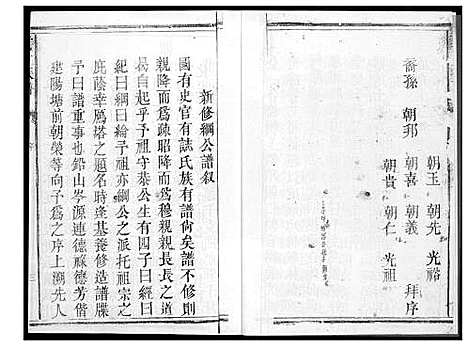 朝玉 朝先 光裕
裔孫 朝邦 朝喜 朝義 拜序
朝貴 朝仁 光祖
新修綱公譜叙
國有史官有誌氏族有譜尙矣譜不修則
親降而爲疏昭降而爲穆親親長長之道
曷自起乎予祖守恭公生有四子曰經曰
紀曰綱曰綸予祖亦綱公之派托祖宗之
庇蔭幸屬塔之題名時逢基養修造譜牒
予曰譜重事也鉛山岑源連德稼德芳偕
建陽塘前朝榮等向予爲之序上溯先人